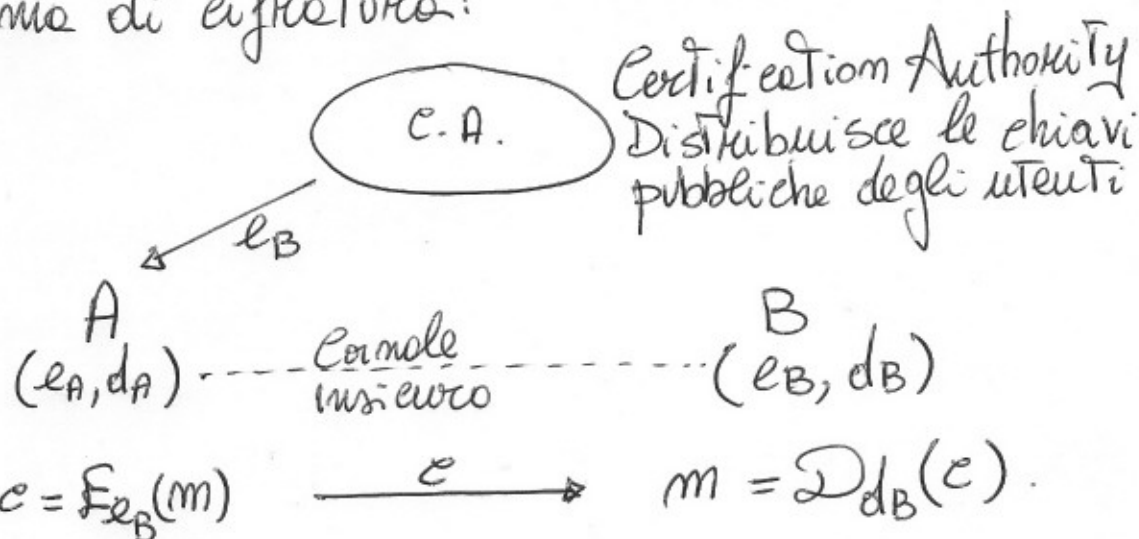 di cifratura:
C.A.
Certification Authority
Distribuisce le chiavi
pubbliche degli utenti
e_B
A
B
(e_A, d_A) Canale (e_B, d_B)
insicuro
c = E_{e_B}(m) c m = D_{d_B}(c).